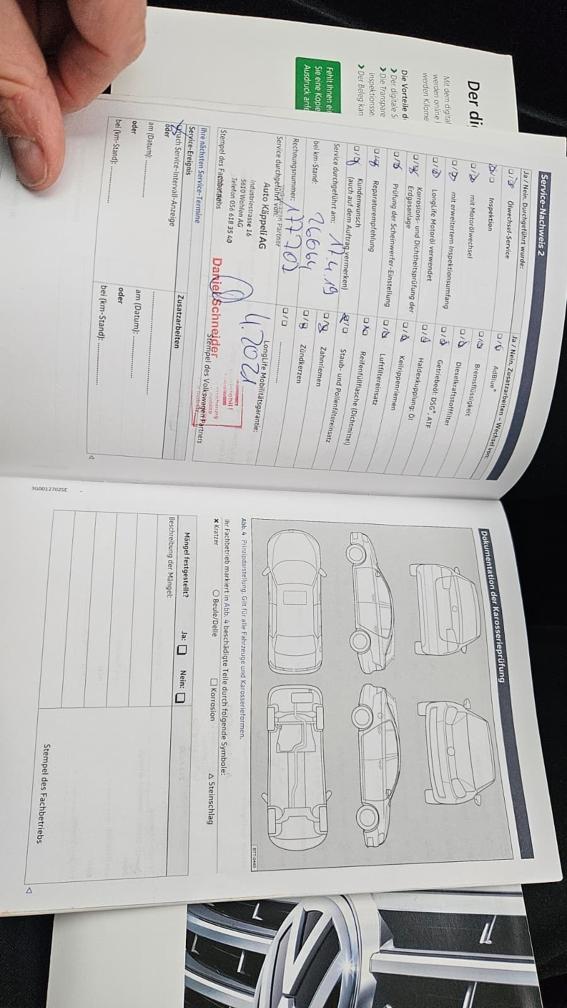 Der di
Mit dem digital
werden online i
werden Kilome
Die Vorteile d
> Der digitale S
> Die Transpare
inspektionsse
> Der Beleg kan
Fehlt Ihnen ei
Sie eine Kopie
Ausdruck anfo
Service-Nachweis 2
Ja / Nein, Durchgeführt wurde:
Ölwechsel-Service
Inspektion
mit Motorölwechsel
mit erweitertem Inspektionsumfang
LongLife Motoröl verwendet
Korrosions- und Dichtheitsprüfung der
Erdgasanlage
Prüfung der Scheinwerfer-Einstellung
Reparaturempfehlung
Kundenwunsch
(auch auf dem Auftrag vermerken)
Service durchgeführt am: 17.4.19
bei km-Stand: 26064
Rechnungsnummer: 77702
Service durchgeführt von:
Auto Käppeli AG
Industriestrasse 16
5610 Wohlen AG
Telefon 056 618 35 40
Stempel des
Ja / Nein, Zusatzarbeiten - Wechsel von:
AdBlue®
Bremsflüssigkeit
Dieselkraftstofffilter
Getriebeöl: DSG®, ATF
Haldexkupplung: Öl
Keilrippenriemen
Luftfiltereinsatz
Reifenfüllflasche (Dichtmittel)
Staub- und Pollenfiltereinsatz
Zahnriemen
Zündkerzen
LongLife Mobilitätsgarantie:
4.2021
Daniel Schneider
Stempel des Volkswagen Partners
Ihre nächsten Service-Termine
Service-Ereignis
Zusatzarbeiten
Nach Service-Intervall-Anzeige
oder
am (Datum):
oder
bei (km-Stand):
am (Datum):
oder
bei (km-Stand):
Dokumentation der Karosserieprüfung
BTT-0445
Abb. 4 Prinzipdarstellung. Gilt für alle Fahrzeuge und Karosserieformen.
Ihr Fachbetrieb markiert in Abb. 4 beschädigte Teile durch folgende Symbole:
× Kratzer ○ Beule/Delle □ Korrosion △ Steinschlag
Mängel festgestellt? Ja: Nein:
Beschreibung der Mängel:
Stempel des Fachbetriebs